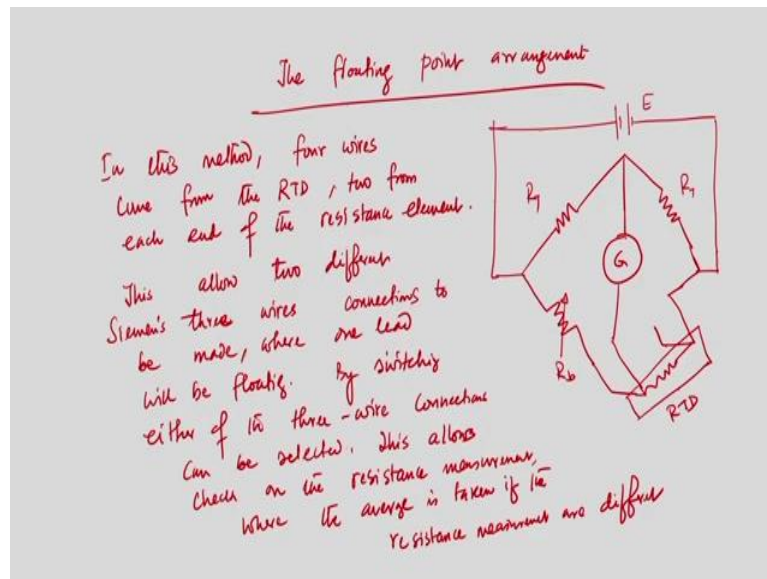 The floating point arrangement
In this method, four wires
come from the RTD, two from
each end of the resistance element.
This allow two different
Siemen's three wires connections to
be made, where one lead
will be floating. By switching
either of the three-wire connections
can be selected. This allows
check on the resistance measurement,
where the average is taken if the
resistance measurement are different
E
R1
R1
G
Rb
RTD